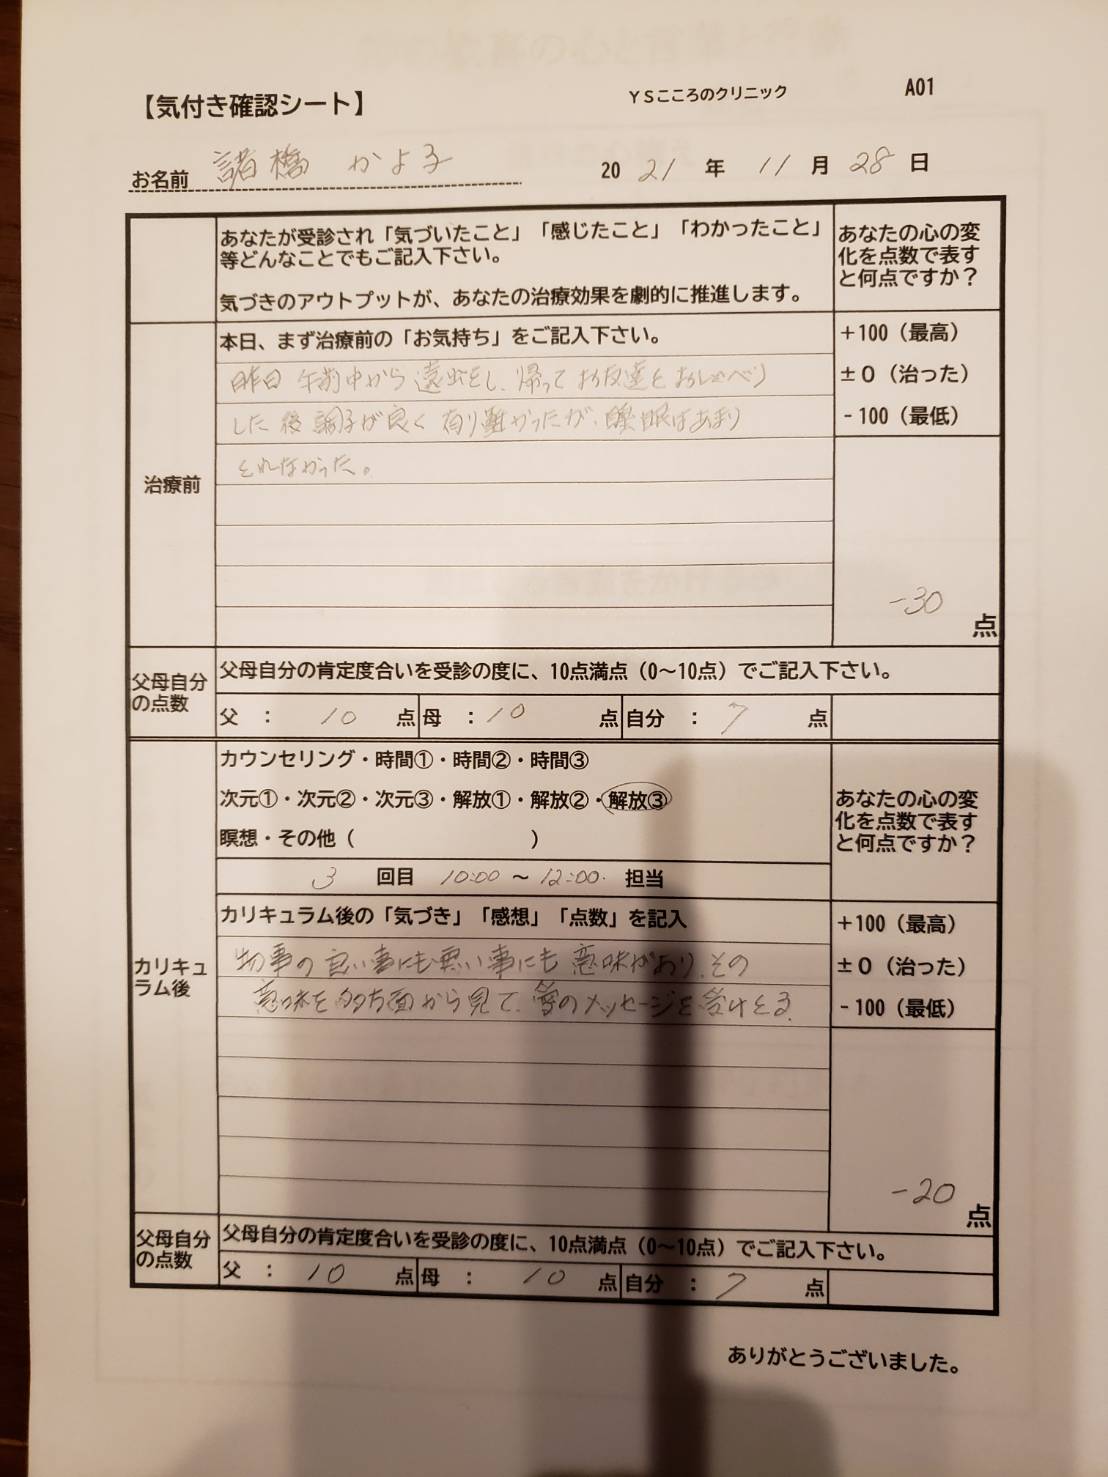 【気付き確認シート】
YSこころのクリニック
A01
お名前 諸橋 かよ子
2021年11月28日
あなたが受診され「気づいたこと」「感じたこと」「わかったこと」
等どんなことでもご記入下さい。
気づきのアウトプットが、あなたの治療効果を劇的に推進します。
あなたの心の変
化を点数で表す
と何点ですか？
治療前
本日、まず治療前の「お気持ち」をご記入下さい。
昨日 午前中から遠出をし、帰ってお友達とおしゃべり
した後調子が良く有り難かったが、睡眠はあまり
とれなかった。
+100（最高）
±0（治った）
-100（最低）
-30点
父母自分
の点数
父母自分の肯定度合いを受診の度に、10点満点（0～10点）でご記入下さい。
父：10点 母：10点 自分：7点
カリキュ
ラム後
カウンセリング・時間①・時間②・時間③
次元①・次元②・次元③・解放①・解放②・解放③
瞑想・その他（ ）
3回目 10:00～12:00. 担当
あなたの心の変
化を点数で表す
と何点ですか？
カリキュラム後の「気づき」「感想」「点数」を記入
物事の良い事にも悪い事にも意味があり、その
意味を多方面から見て、愛のメッセージを受けとる.
+100（最高）
±0（治った）
-100（最低）
-20点
父母自分
の点数
父母自分の肯定度合いを受診の度に、10点満点（0～10点）でご記入下さい。
父：10点 母：10点 自分：7点
ありがとうございました。